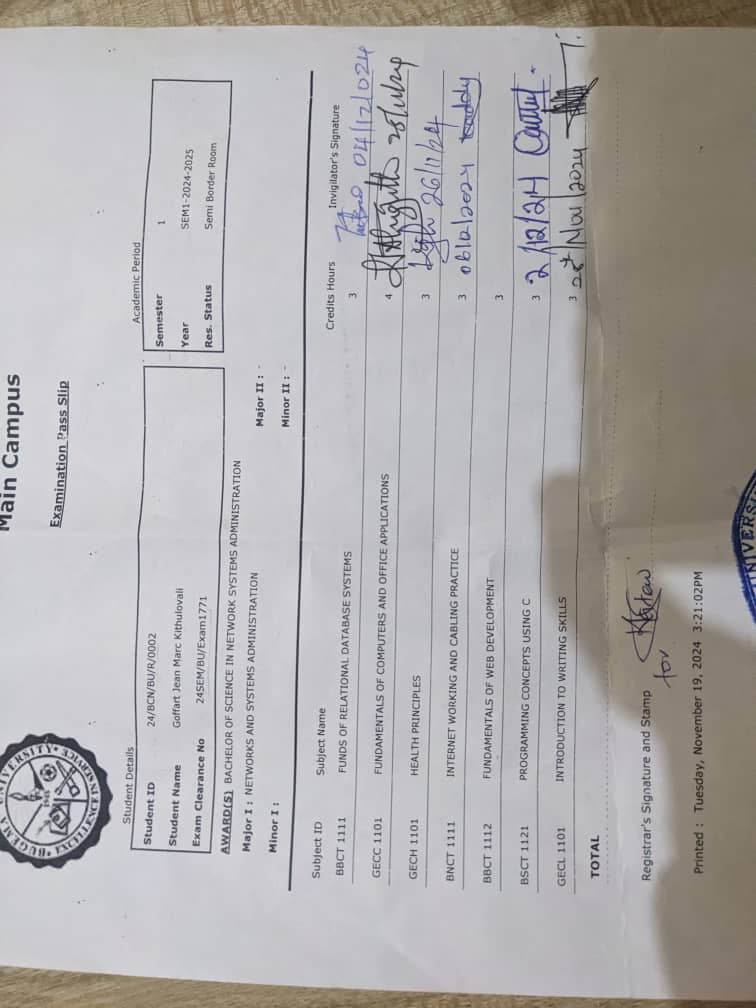 Main Campus
Examination Pass Slip
BUGEMA UNIVERSITY
EXCELLENCE IN SERVICE
Student Details
Academic Period
Student ID 24/BCN/BU/R/0002
Semester 1
Student Name Goffart Jean Marc Kithulovali
Year SEM1-2024-2025
Exam Clearance No 24SEM/BU/Exam1771
Res. Status Semi Border Room
AWARD(S) BACHELOR OF SCIENCE IN NETWORK SYSTEMS ADMINISTRATION
Major I : NETWORKS AND SYSTEMS ADMINISTRATION Major II : -
Minor I : Minor II : -
Subject ID Subject Name Credits Hours Invigilator's Signature
BBCT 1111 FUNDS OF RELATIONAL DATABASE SYSTEMS 3 04/12/2024
GECC 1101 FUNDAMENTALS OF COMPUTERS AND OFFICE APPLICATIONS 4
GECH 1101 HEALTH PRINCIPLES 3 26/11/24
BNCT 1111 INTERNET WORKING AND CABLING PRACTICE 3 06/12/2024
BBCT 1112 FUNDAMENTALS OF WEB DEVELOPMENT 3
BSCT 1121 PROGRAMMING CONCEPTS USING C 3 2/12/24
GECL 1101 INTRODUCTION TO WRITING SKILLS 3 Nov/2024
TOTAL
Registrar's Signature and Stamp
for
Printed : Tuesday, November 19, 2024 3:21:02PM
UNIVERS